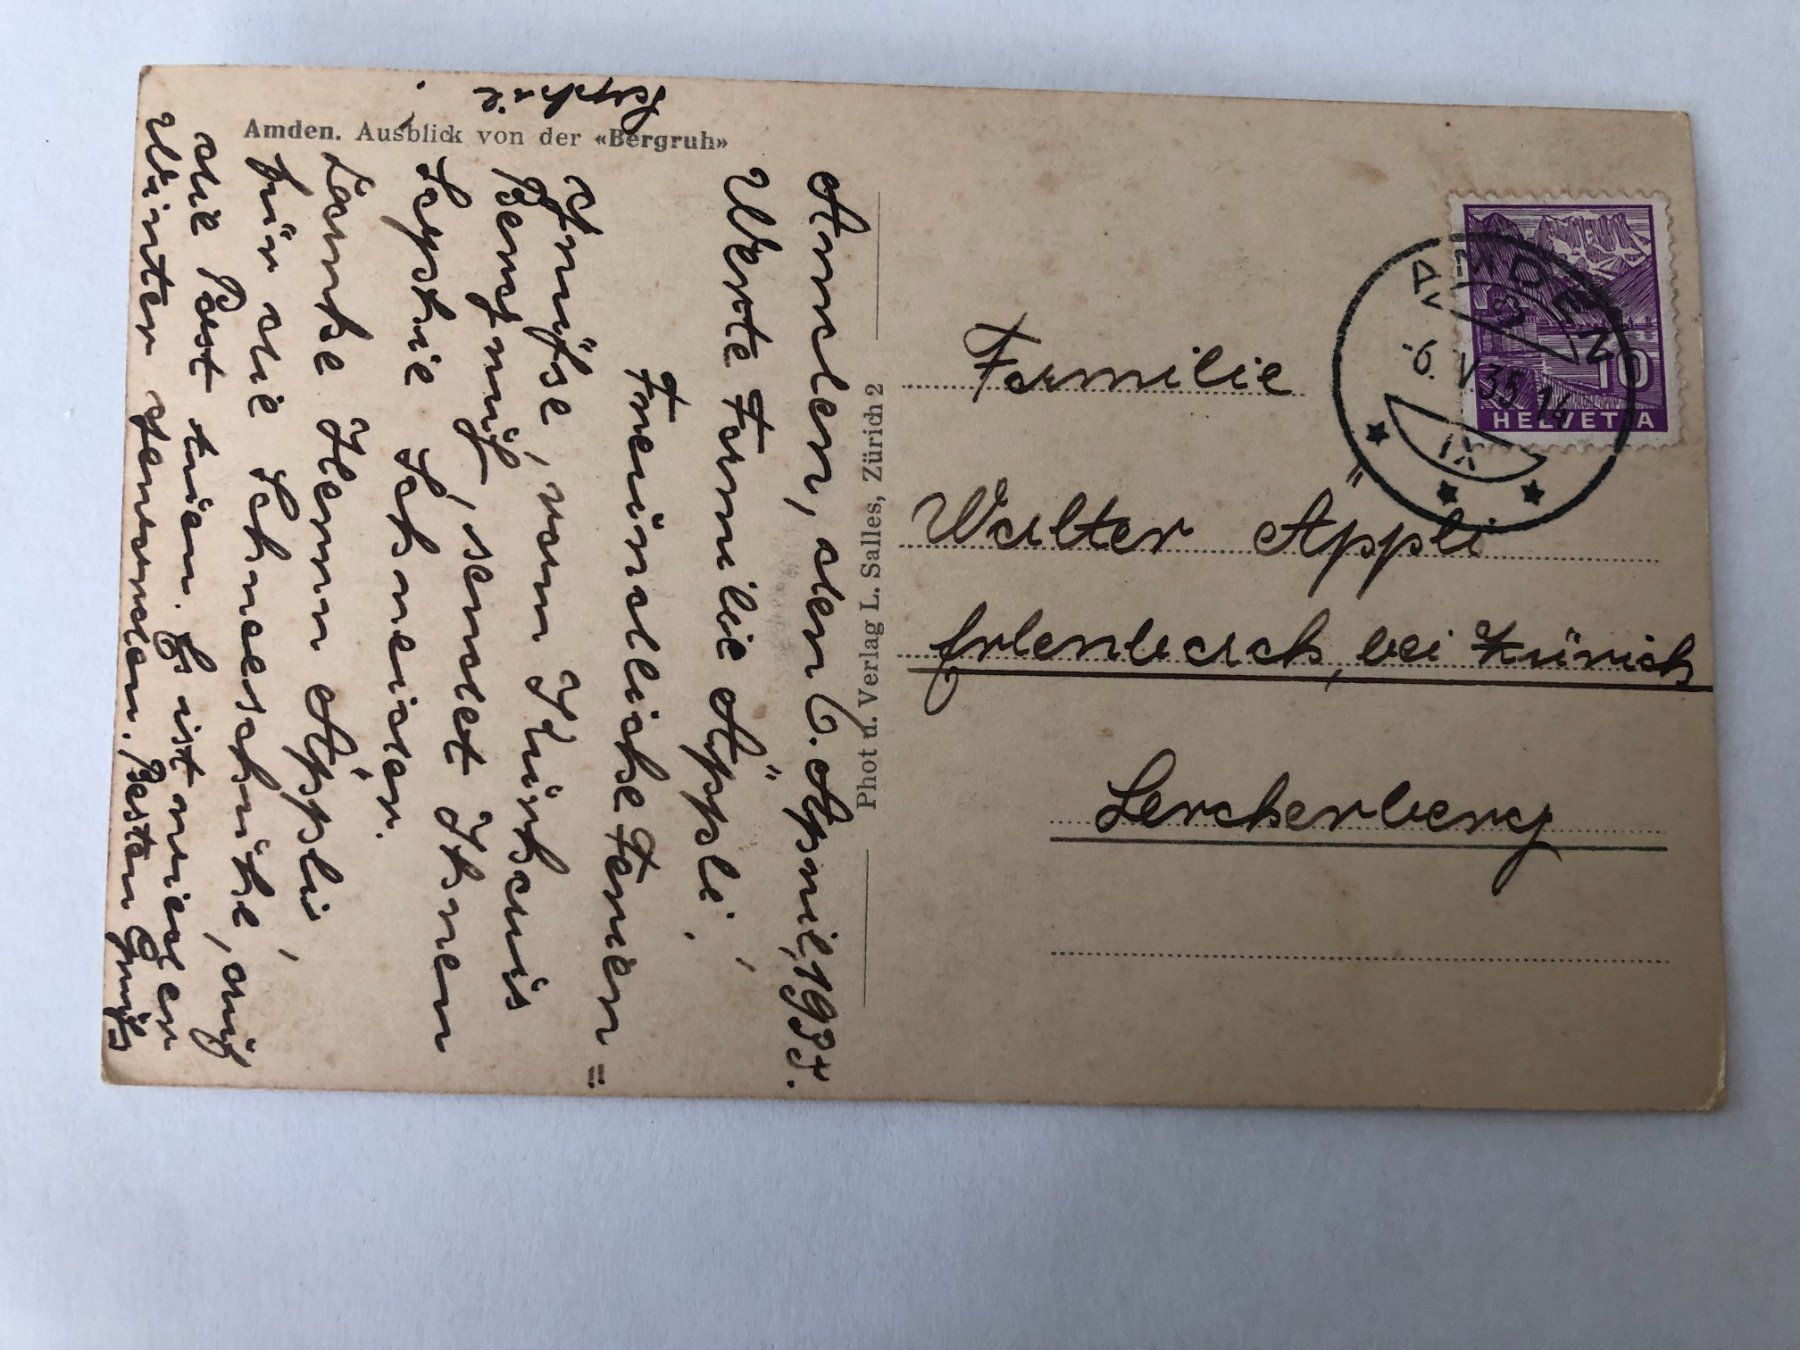 Amden. Ausblick von der «Bergruh»
Amden, den 6. April, 1935.
Werte Familie Äppli,
Freundliche Ferien=
grüsse, vom Kurhaus
Bergruh, sendet Ihnen
Sophie Schneider.
Danke Herrn Äppli,
für die Schneeschuhe, auf
die Post tuen. Es ist wieder
Winter geworden. Besten Gruß
Sophie
Phot u. Verlag L. Salles, Zürich 2
Familie
Walter Äppli
Erlenbach, bei Zürich
Lerchenberg
AMDEN
6. IV 35 14
HELVETIA
10